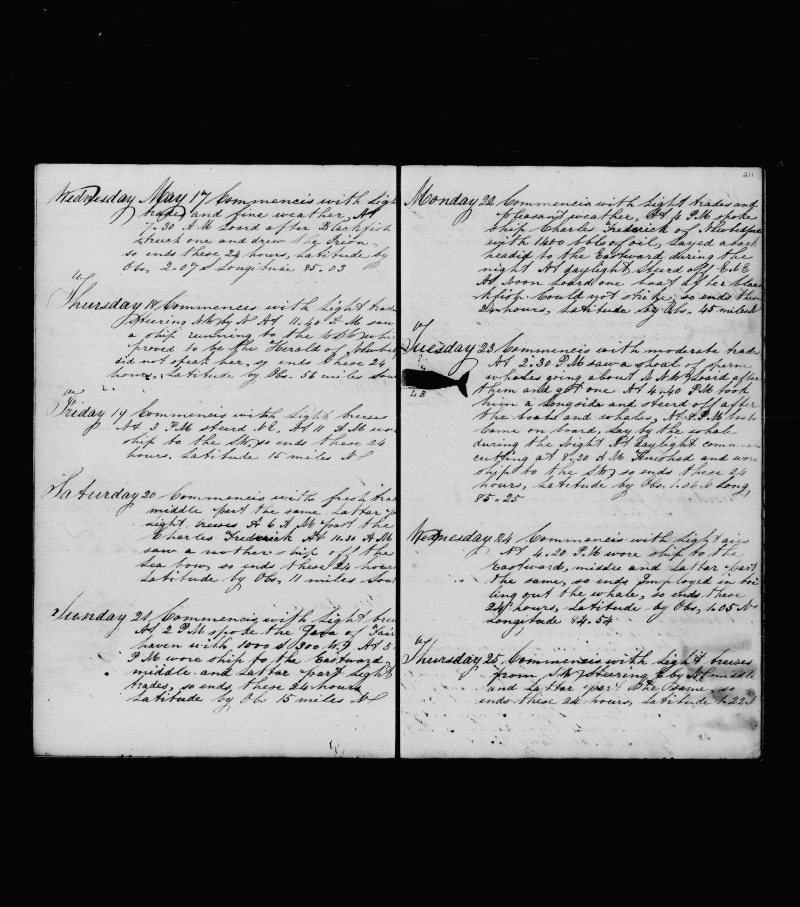 Wednesday May 17 Commencis with Ligh
trades and fine weather, At
7.30 A M Loard after Blackfish
struck one and drew the Iron,
so ends these 24 hours, Latitude by
Obs, 2.07 S Longitude 85.03
Thursday 18, Commencis with Light trade
Steering NW by N At 11.40 A M saw
a ship running to the
proved to be the Herald of
did not speak her, so ends these 24
hours, Latitude by Obs. 56 miles Sout
Friday 19 Commencis with Light breeses
At 3 P M steerd NE, At 11 A M wor
ship to the SW so ends these 24
hours. Latitude 15 miles N
Saturday 20 Commencis with fresh trad
middle part the same Latter p
Light breeses A 6 A M part the
Charles Frederick At 11.30 A M
saw a nother ship off the
Lea bow, so ends these 24 hours
Latitude by Obs, 11 miles Sout
Sunday 21 Commencis with Light bree
At 2 P M spoke the Java of Fair
haven with 1000 S 300 W, At 5
P M wore ship to the Eastward,
middle and Lattar part Light
trades, so ends, these 24 hours
Latitude by Obs 15 miles N
211
Monday 22 Commencis with Light trades and
pleasant weather, At 4 P M spoke
ship Charles Frederick of
with 1400 bbls of oil, Layed aback
headid to the Eastward during the
night At daylight Steerd off ENE
At Noon Loard one boat after blac
kfish Could not strike, so ends these
24 hours, Latitude by Obs. 45 miles
Tuesday 23 Commencis with moderate trade
At 2.30 P M saw a shoal of sperm
whales going about NNW Loard after
them and got one At 4.40 P.M took
him a Longside and steerd off after
the boats and whales, At 8 P M boats
Came on board, Lay by the whale
during the Night At daylight commenc
cutting at 8.20 A M Finished and wore
ship to the SW so ends these 24
hours, Latitude by Obs, 1.06 Long,
85.25
L. B
Wednesday 24 Commencis with Light airs
At 4.20 P.M wore ship to the
Eastward, middle and Lattar part
the same, so ends Employed in boi
ling out the whale, so ends these
24 hours, Latitude by Obs, 1.05 N
Longitude 84.54
Thursday 25 Commencis with Light breeses
from SW Steering E by N middle
and Lattar part the same, so
ends these 24 hours, Latitude 1.22